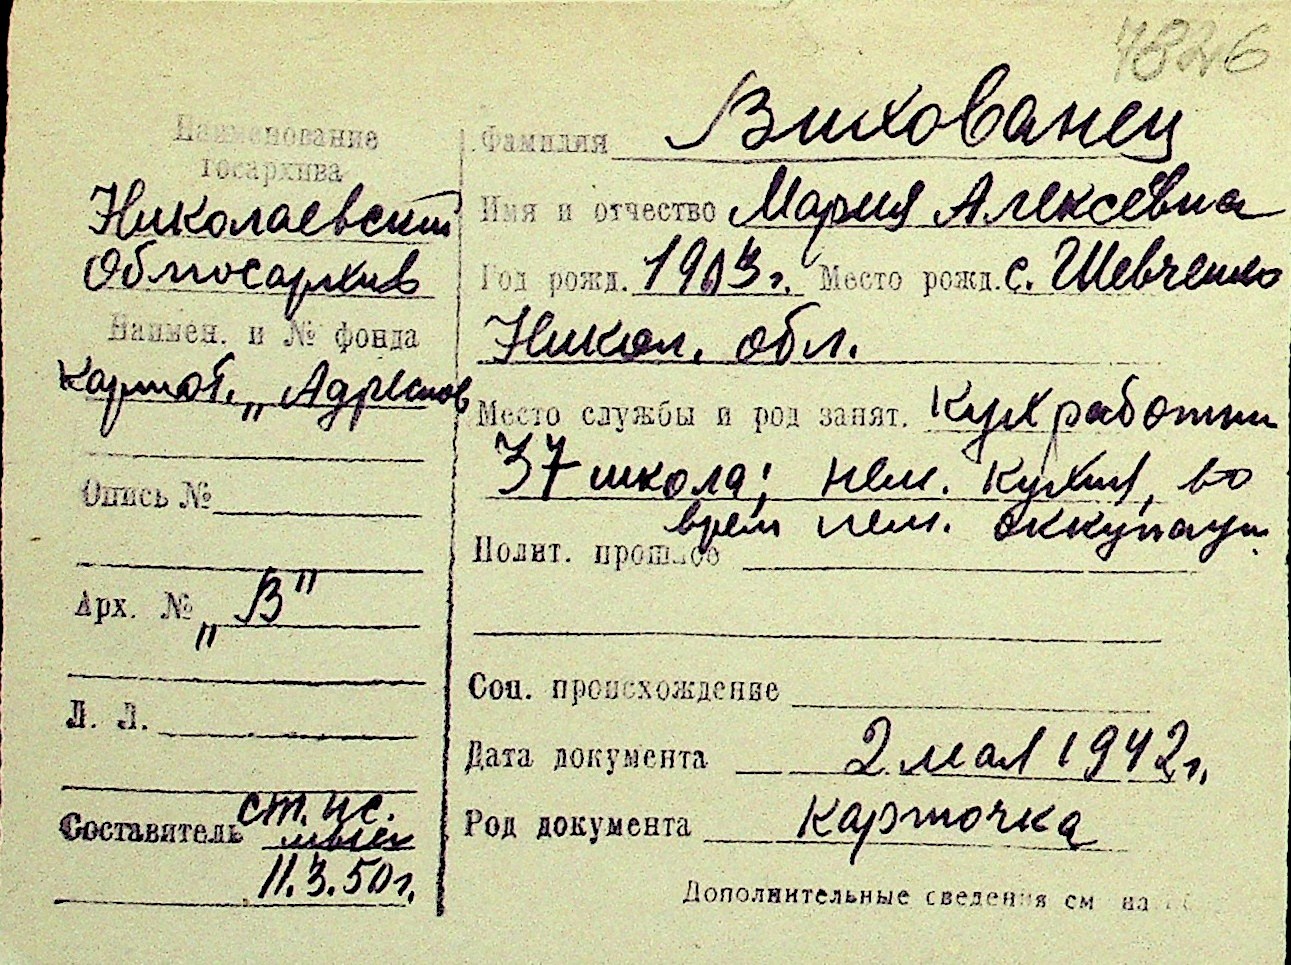 4826
Наименование
госархива
Николаевский
Облгосархив
Наимен. и № фонда
Картот. "Адресов
Опись №
Арх. № "В"
Л. Л.
Составитель ст. н.с.
11.3.50 г.
Фамилия Вихованец
Имя и отчество Мария Алексеевна
Год рожд. 1903 г. Место рожд. с. Шевченко
Никол. обл.
Место службы и род занят. Кухработни
37 школа; нем. кухня, во
врем нем. оккупации
Полит. прошлое
Соц. происхождение
Дата документа 2 мая 1942 г.
Род документа Карточка
Дополнительные сведения см на